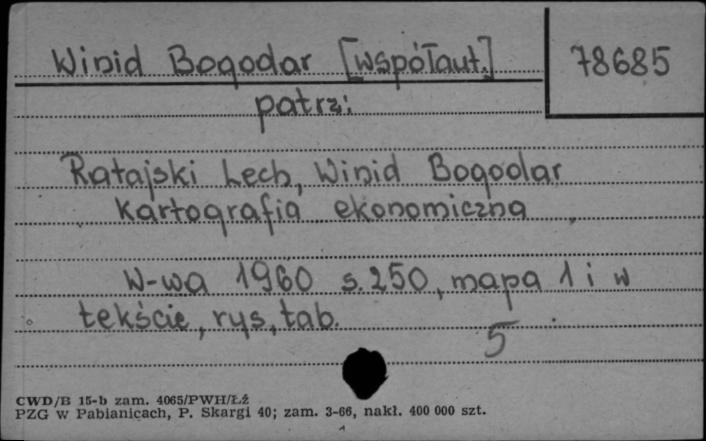 Winid Bogodar [współaut.] 78685
patrz:
Ratajski Lech, Winid Bogodar
Kartografia ekonomiczna
W-wa 1960 s. 250, mapa 1 i w
tekście, rys, tab.
5
CWD/B 15-b zam. 4065/PWH/Łż
PZG w Pabianicach, P. Skargi 40; zam. 3-66, nakł. 400 000 szt.